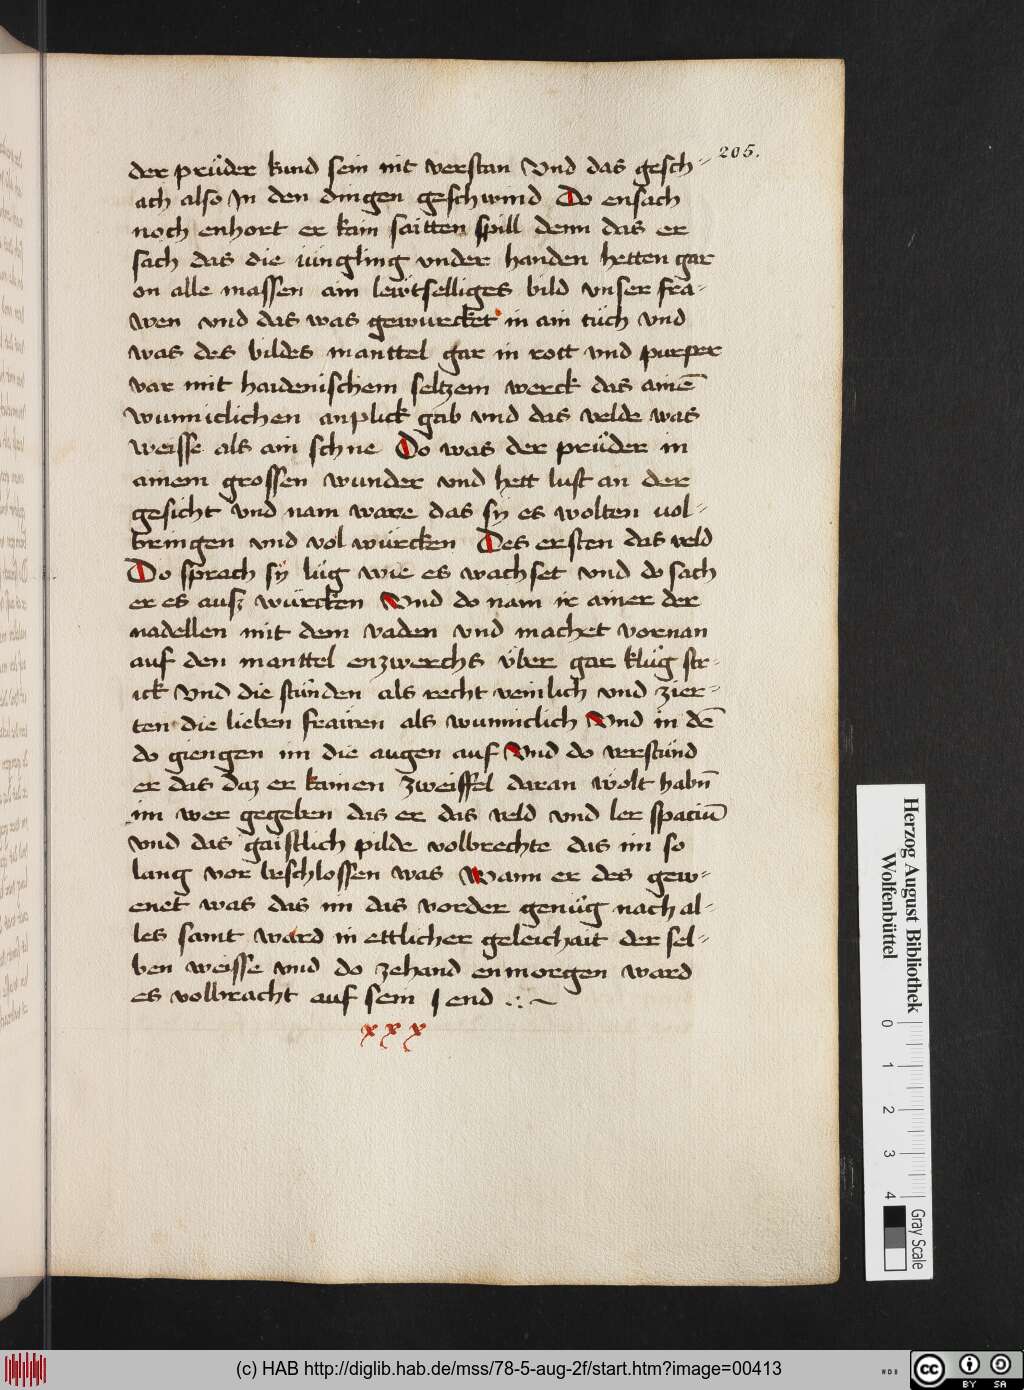 205.
der průder kund sein nit verstan Vnd das gesch-
ach also In den dingen geschwind Do ensach
noch enhort er kain saitten spill denn das er
sach das die iüngling vnder handen hetten gar
on alle massen ain lewtselliges bild vnser fra-
wen vnd das was gewurcket in ain tuch vnd
was des bildes manttel gar in rott vnd purper
var mit haidenischem seltzem werck das ainē
wunniclichen anplick gab vnd das velde was
weisse als ain schne Do was der průder in
ainem grossen wunder vnd hett lust an der
gesicht vnd nam ware das sÿ es wolten vol-
bringen vnd vol würcken Des ersten das veld
Do sprach sÿ lůg wie es wachset vnd do sach
er es ausz würcken Vnd do nam ir ainer der
nadellen mit dem vaden vnd machet vornan
auf den manttel enzwerchs über gar klůg str-
ick Vnd die stůnden als recht veinlich vnd zier-
ten die lieben frawen als wunniclich Vnd in dē
do giengen im die augen auf Vnd do verstůnd
er das daz er kainen zweiffel daran wolt habn̄
im wer gegeben das er das veld vnd ler spaciū
vnd das gaistlich pilde volbrechte das im so
lang vor beschlossen was Wann er des gew-
enet was das im das vorder genůg nach al-
les samt ward in ettlicher geleichait der sel-
ben weisse vnd do zehand enmorgen ward
es volbracht auf sein end
xxx
Herzog August Bibliothek
Wolfenbüttel
0 1 2 3 4
Gray Scale
(c) HAB http://diglib.hab.de/mss/78-5-aug-2f/start.htm?image=00413
cc BY SA